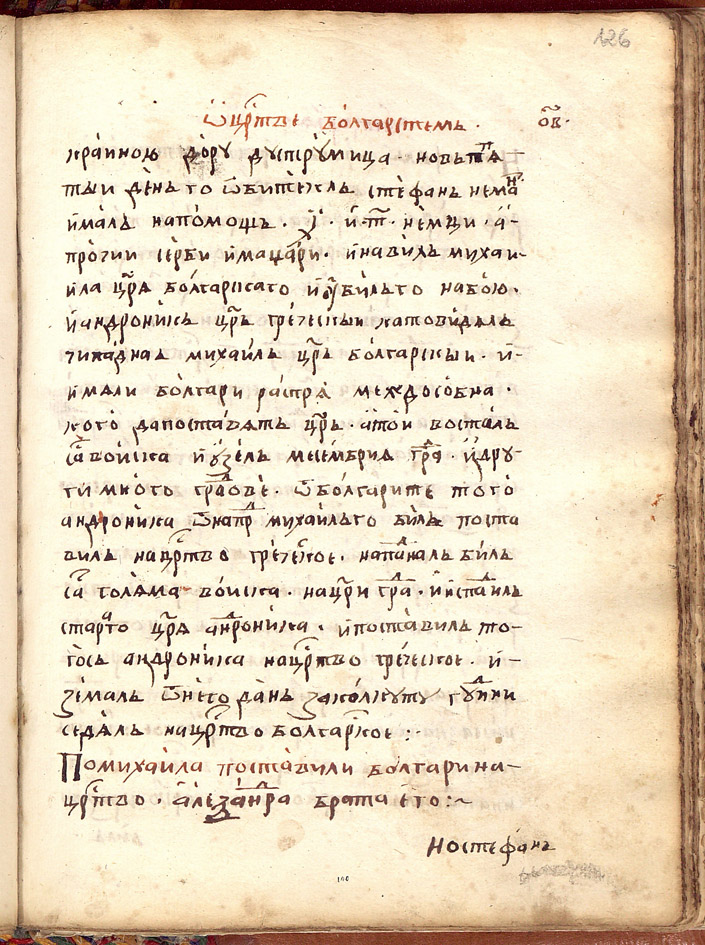 126
Ѿ црⷭ҇тве болгарстемъ · ѻв҃·
краиною до́ру дустрꙋ́мица · новь пꙗ
тыи де́нь го ѡби́текль сте́фань нема́нꙗ
и҆ма́ль на по́мощь · і҃ · и҆ · т҃ · не́мци · а҆-
про́гии се́рби и҆ маџа́ри · и҆ навиль михаи-
и҆ла црⷭ҇ѧ болгарскаго и҆ ᲂу҆би́ль го на бою ·
и҆ андрони́кь цр҃ь гре́ческыи като ви́дѧль
михаи́ль цр҃ь болгарскыи · и҆-
и҆мѧли бо́лгари распрѧ междособна ·
кого́ да поста́вѧть цр҃ь · а҆ то́и воста́ль
са во́иска и҆ ᲂу҆зе́ль месемврїа гра́дⷣ · и҆ дру-
ги мно́го гра́дове · ѿ бо́лгарите того́
андрони́ка ѿнапр҃ михаи́ль го би́ль поста
виль на црⷭ҇тво гре́ческое · нападналь би́ль
са голѧма во́иска · на цр҃и гра́дⷣ · и҆ и҆спⷣаиль
ста́раго црⷭ҇ѧ андрони́ка · и҆ поста́виль то-
го́сь андрони́ка на црⷭ҇тво гре́ческое · и҆-
зе́маль ѿ него да́нь за колкуту гⷣни
седѧ́ль на црⷭ҇тво болгарⷭ҇кое :·
По михаи́ла поста́вили болгари на-
црⷭ҇тво · алеѯа́нⷣра брата его :~
Но стефа́нь